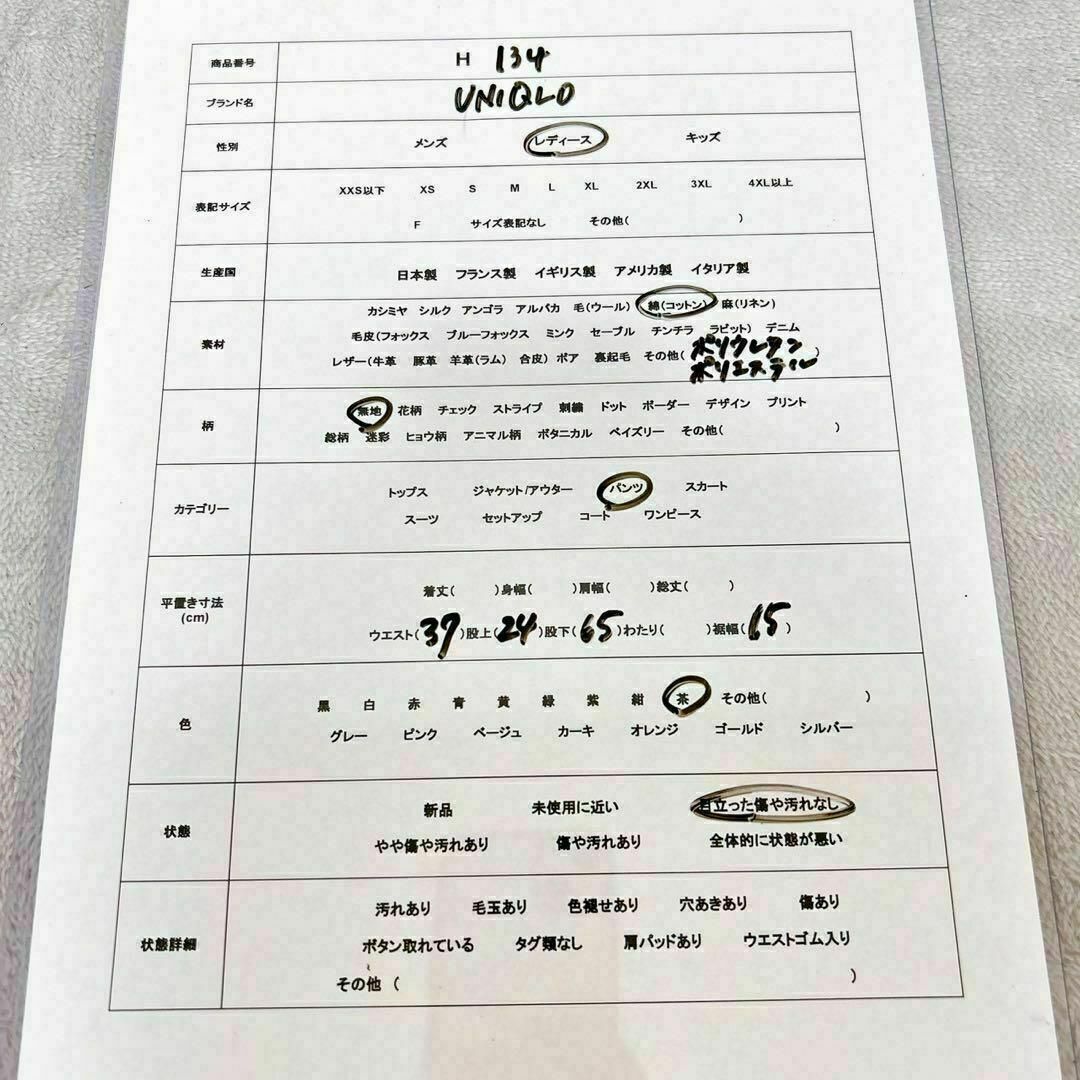 商品番号 H 134
ブランド名 UNIQLO
性別 メンズ レディース キッズ
表記サイズ XXS以下 XS S M L XL 2XL 3XL 4XL以上
F サイズ表記なし その他( )
生産国 日本製 フランス製 イギリス製 アメリカ製 イタリア製
素材 カシミヤ シルク アンゴラ アルパカ 毛(ウール) 綿(コットン) 麻(リネン)
毛皮(フォックス ブルーフォックス ミンク セーブル チンチラ ラビット) デニム
レザー(牛革 豚革 羊革(ラム) 合皮) ボア 裏起毛 その他( ポリウレタン )
ポリエステル
柄 無地 花柄 チェック ストライプ 刺繍 ドット ボーダー デザイン プリント
総柄 迷彩 ヒョウ柄 アニマル柄 ボタニカル ペイズリー その他( )
カテゴリー トップス ジャケット/アウター パンツ スカート
スーツ セットアップ コート ワンピース
平置き寸法 着丈( )身幅( )肩幅( )総丈( )
(cm) ウエスト( 37 )股上( 24 )股下( 65 )わたり( )裾幅( 15 )
色 黒 白 赤 青 黄 緑 紫 紺 茶 その他( )
グレー ピンク ベージュ カーキ オレンジ ゴールド シルバー
状態 新品 未使用に近い 目立った傷や汚れなし
やや傷や汚れあり 傷や汚れあり 全体的に状態が悪い
状態詳細 汚れあり 毛玉あり 色褪せあり 穴あきあり 傷あり
ボタン取れている タグ類なし 肩パッドあり ウエストゴム入り
その他 ( )